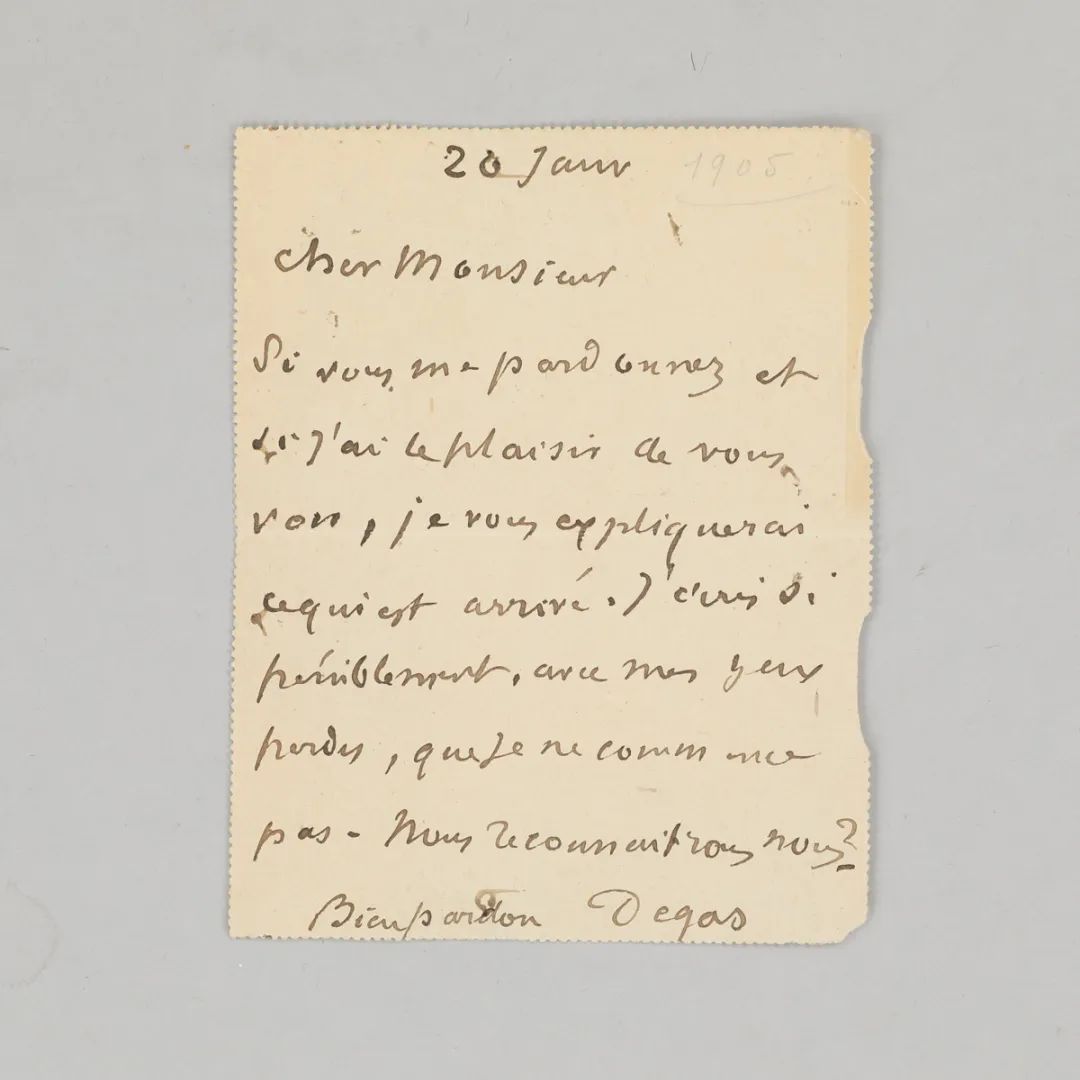 20 Janv 1905
cher Monsieur
Si vous me pardonnez et
si j'ai le plaisir de vous
voir, je vous expliquerai
ce qui est arrivé. J'écris si
péniblement, avec mes yeux
perdus, que je ne commence
pas - Nous reconnaitrons nous?
Bien pardon Degas